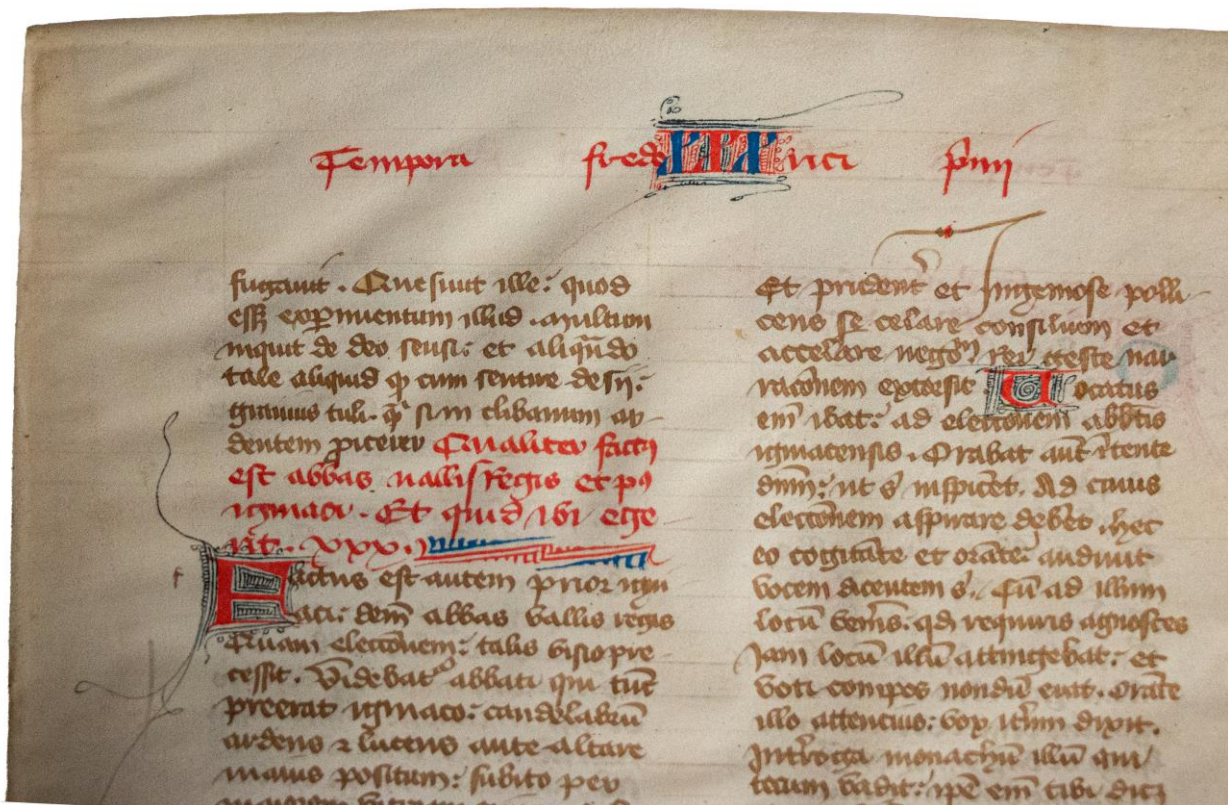 Tempora fred XXX rici p̄mi
fugauit . Quesiuit ille : quod
eēt exp̄imentum illud . Multum
inquit de deo sensi : et aliqn̄do
tale aliquid qͥ cum sentire desij :
grauius tuli . qͣ si in clibanum ar-
dentem ꝓicerer Qualiter factꝰ
est abbas uallis regis et pꝰ
igniaci . Et quid ibi ege-
rit . xxx .
Factus est autem prior igni
aci : dem̄ abbas vallis regis
Quam elect̄onem : talis visio pre-
cessit . Videbat᷑ abbati qui tūc
preerat igniaco : candelabrū
ardens ⁊ lucens ante altare
maius positum : subito per
Et prudent᷑ et Ingeniose polli-
cens se celare consilium et
accelare negoc̄ rei
rac̄onem extersit Uocatus
em̄ ibat : ad elect̄onem abbīs
igniacensis . Orabat aut̄ ītente
dn̄m : ut s̄ inspicēt . Ad cuius
elect̄onem aspirare deberet . hec
eo cogitāte et orāte : audiuit
vocem dicentem s̄ . Cū ad illum
locū veneris : qd̄ requiris agnosces
Jam locū illū attingebat : et
voti compos nondū erat . orāte
illo attencius : vox itm̄ dixit .
Int̄roga monachū illū qui
tecum vadit : ip̄e em̄ tibi dicet